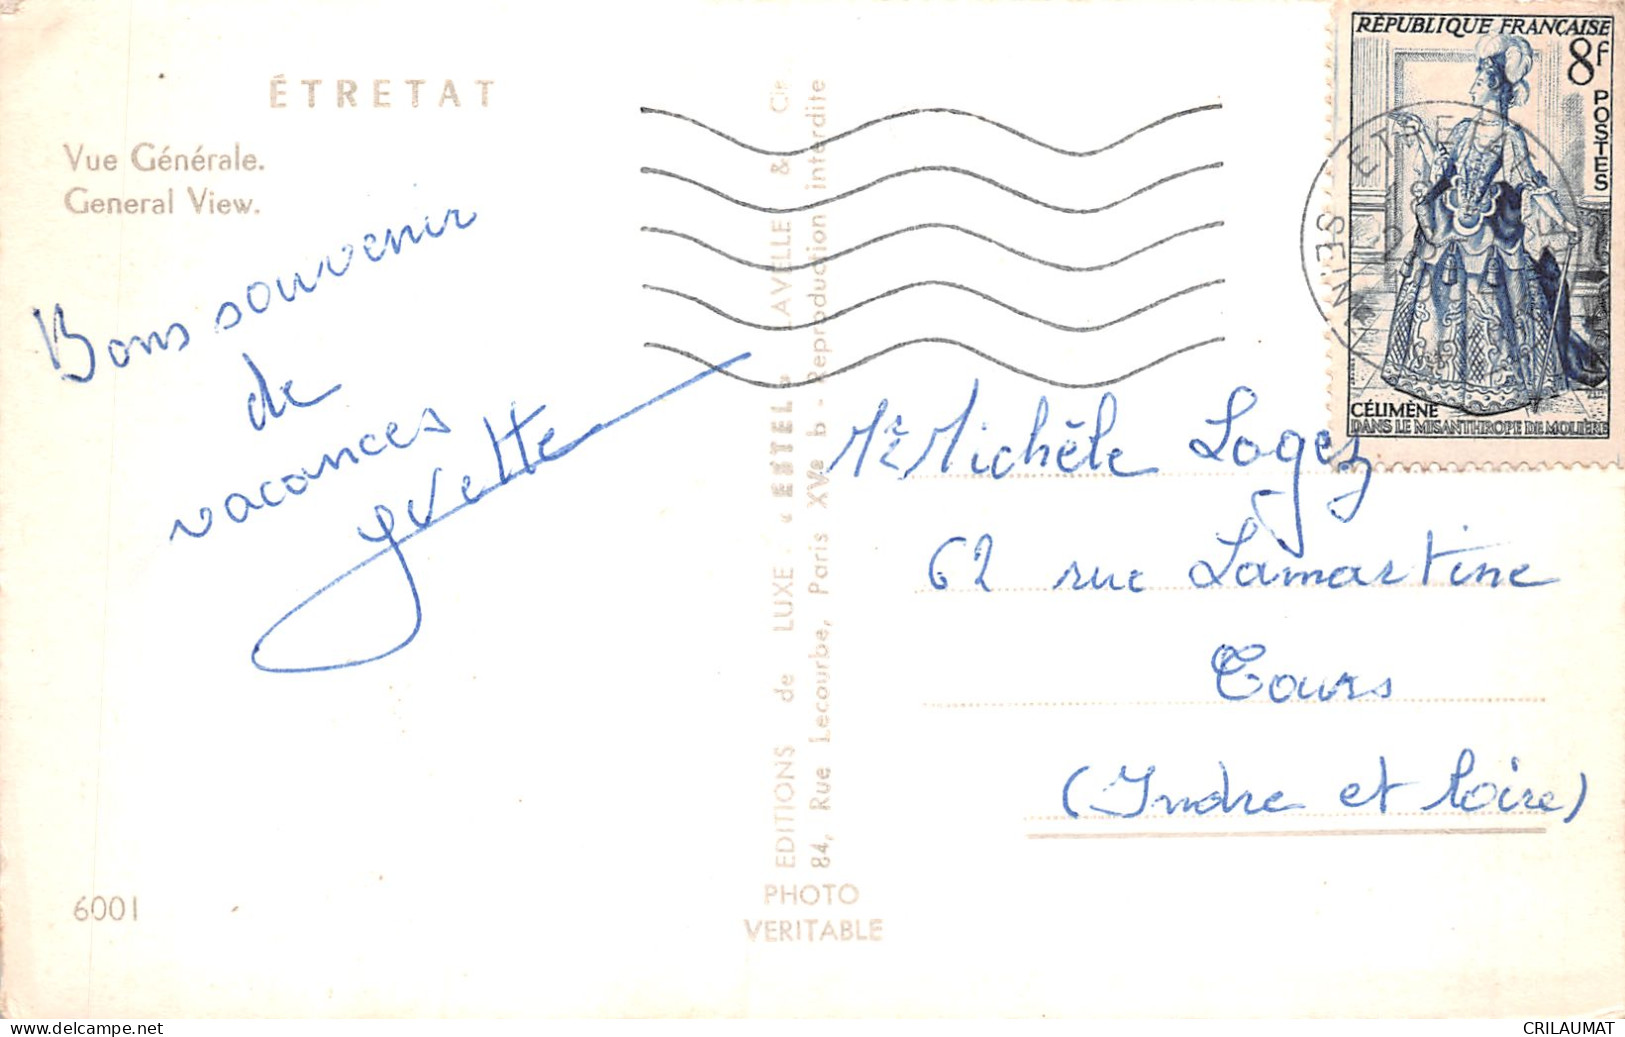 ÉTRETAT
Vue Générale.
General View.
Bons souvenir
de
vacances
Yvette
6001
EDITIONS de LUXE "ESTEL" LAVELLE & Cie
84, Rue Lecourbe, Paris XVe b - Reproduction interdite
PHOTO
VERITABLE
RÉPUBLIQUE FRANÇAISE
8f
POSTES
CÉLIMÈNE
DANS LE MISANTHROPE DE MOLIÈRE
ETRETAT
Michèle Logez
62 rue Lamartine
Tours
(Indre et Loire)
delcampe.net
CRILAUMAT